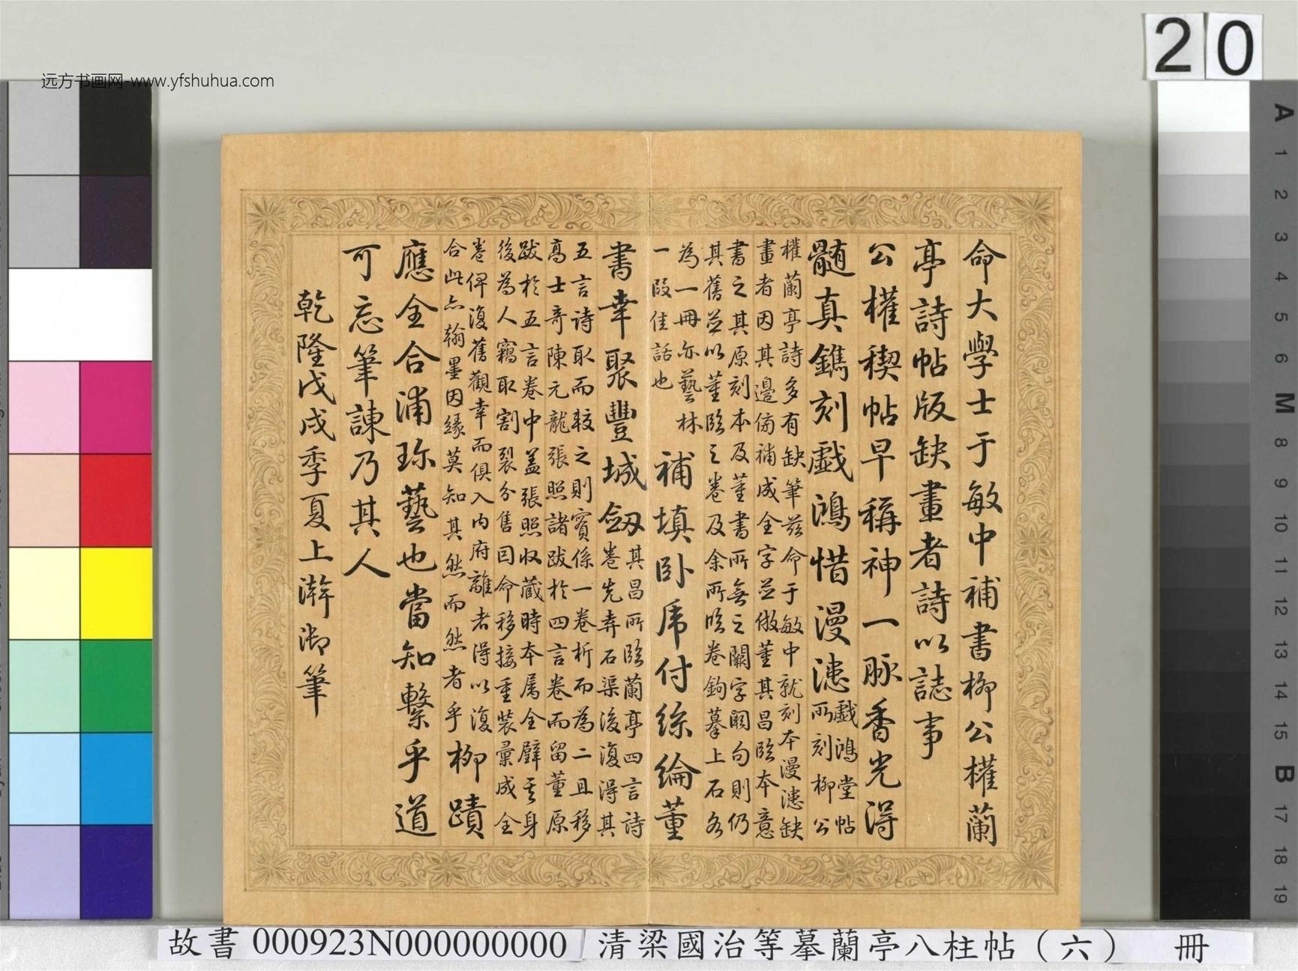 远方书画网-www.yfshuhua.com
20
命大學士于敏中補書柳公權蘭
亭詩帖版缺畫者詩以誌事
公權稧帖早稱神一脈香光得
髓真鐫刻戲鴻惜漫漶
戲鴻堂帖
所刻柳公
權蘭亭詩多有缺筆茲命于敏中就刻本漫漶缺
畫者因其邊傍補成全字並倣董其昌臨本意
書之其原刻本及董書所無之闕字闕句則仍
其舊並以董臨之卷及余所臨卷鉤摹上石各
為一冊亦藝林
一段佳話也
補填卧虎付絲綸董
書幸聚豐城劔
其昌所臨蘭亭四言詩
卷先弆石渠後復得其
五言詩取而較之則實係一卷析而為二且移
高士奇陳元龍張照諸跋於四言卷而留董原
跋於五言卷中蓋張照収藏時本属全璧其身
後為人竊取割裂分售因命移接重裝彙成全
卷俾復舊觀幸而俱入内府離者得以復
合此亦翰墨因緣莫知其然而然者乎
柳蹟
應全合浦珎藝也當知繫乎道
可忘筆諫乃其人
乾隆戊戌季夏上澣御筆
A 1 2 3 4 5 6 M 8 9 10 11 12 13 14 15 B 17 18 19
故書 000923N000000000 清梁國治等摹蘭亭八柱帖（六） 冊